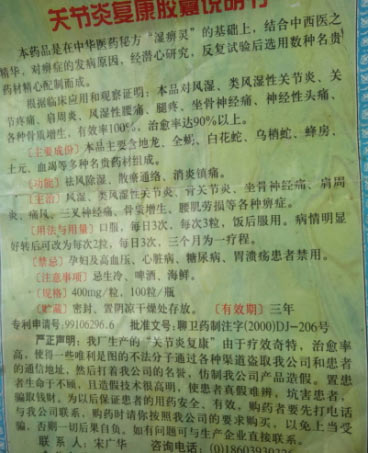 关节炎复康胶囊说明书
本药品是在中华医药秘方“湿痹灵”的基础上，结合中西医之
精华，对痹症的发病原因，经潜心研究，反复试验后选用数种名贵
药材精心配制而成。
根据临床应用和观察证明：本品对风湿、类风湿性关节炎、关
节疼痛、肩周炎、风湿性腰痛、腿疼、坐骨神经痛、神经性头痛、
各种骨质增生，有效率100%，治愈率达90%以上。
〔主要成份〕本品主要含地龙、全蝎、白花蛇、乌梢蛇、蜂房、
土元、血竭等多种名贵药材组成。
〔功能〕祛风除湿、散瘀通络、消炎镇痛。
〔主治〕风湿、类风湿性关节炎、骨关节炎、坐骨神经痛、肩周
炎、痛风、三叉神经痛、骨质增生、腰肌劳损等各种痹症。
〔用法与用量〕口服，每日3次，每次3粒，饭后服用。病情明显
好转后可改为每次2粒，每日3次，三个月为一疗程。
〔禁忌〕孕妇及高血压、心脏病、糖尿病、胃溃疡患者禁用。
〔注意事项〕忌生冷、啤酒、海鲜。
〔规格〕400mg/粒，100粒/瓶
〔贮藏〕密封、置阴凉干燥处存放。〔有效期〕三年
专利申请号.99106296.6 批准文号：聊卫药制注字(2000)DJ-206号
严正声明：我厂生产的“关节炎复康”由于疗效奇特，治愈率
高，使得一些唯利是图的不法分子通过各种渠道盗取我公司和患者
的通信地址，然后打着我公司的名誉，仿制我公司产品造假。置患
者生命于不顾，且造假技术很高明，使患者真假难辨，坑害患者，
骗取钱财，为以后保证患者的用药安全、有效。购药者要先打电话
与我公司联系，购药时请你按照我公司的要求购买，以免上当受
骗，否则一切后果自负。如有问题可与生产企业直接联系。
联系人：宋广华 咨询电话：(0)1860393022